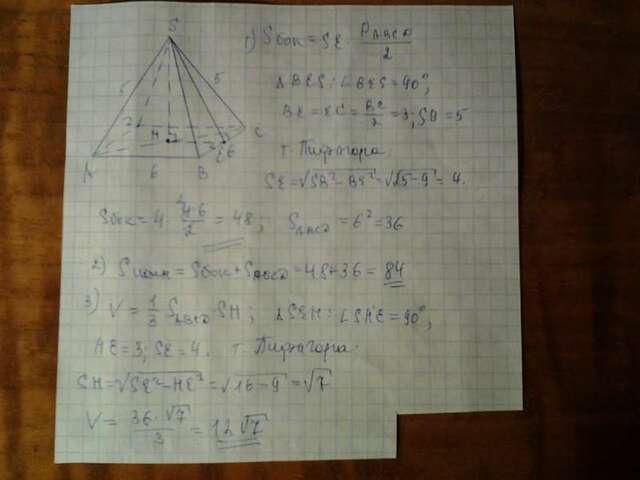 S
5
5
H
C
A
6
B
E
6
1) Sбок = SE · P_ABCD / 2
ΔBES: ∠BES = 90°,
BE = EC = BC/2 = 3; SB = 5
т. Пифагора.
SE = √SB² - BE² = √25-9 = 4.
Sбок = 4 · 4·6/2 = 48; S_ABCD = 6² = 36
2) Sполн = Sбок + S_ABCD = 48 + 36 = 84
3) V = 1/3 S_ABCD · SH; ΔSEH: ∠SHE = 90°,
HE = 3; SE = 4. т. Пифагора.
SH = √SE² - HE² = √16-9 = √7
V = 36·√7/3 = 12√7